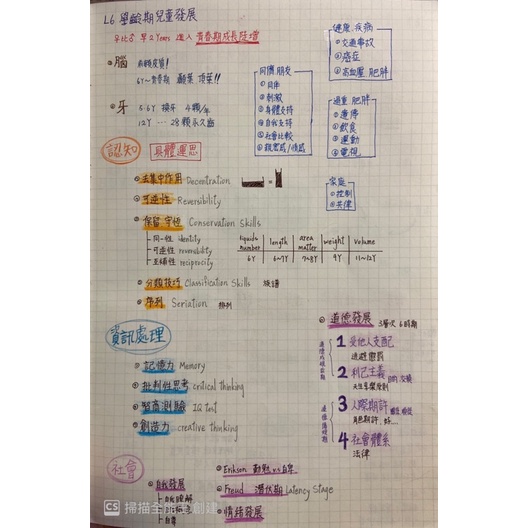 L6 學齡期兒童發展
女比男 早2 Years 進入 青春期成長陡增
腦 前額皮質!
6Y~青春期 顳葉 頂葉!!
牙 5.6Y 換牙 4顆/年
12Y … 28顆永久齒
同儕 朋友
①目伴
②刺激
③身體支持
④自我支持
⑤社會比較
⑥親密感/情感
健康.疾病
①交通事故
②癌症
③高血壓.肥胖
過重.肥胖
①遺傳
②飲食
③運動
④電視
家庭
①控制
②共律
認知 具體運思
去集中作用 Decentration =
可逆性 Reversibility
保留.守恆 Conservation Skills
同一性 identity
可逆性 reversibility
互補性 reciprocity
liquids number length area matter weight volume
6Y 6~7Y 7~8Y 9Y 11~12Y
分類技巧 Classification Skills 族譜
序列 Seriation 排列
資訊處理
記憶力 Memory
批判性思考 critical thinking
智商測驗 IQ test
創造力 creative thinking
道德發展 3層次 6時期
1 受他人支配
逃避懲罰
2 利己主義 目的.交換
天性享樂原則
3 人際期許
角色期許.好…
4 社會體系
法律
社會
自我發展
自我瞭解
自尊
Erikson 勤勉 vs 自卑
Freud 潛伏期 Latency Stage
情緒發展
CS 掃描全能王 創建